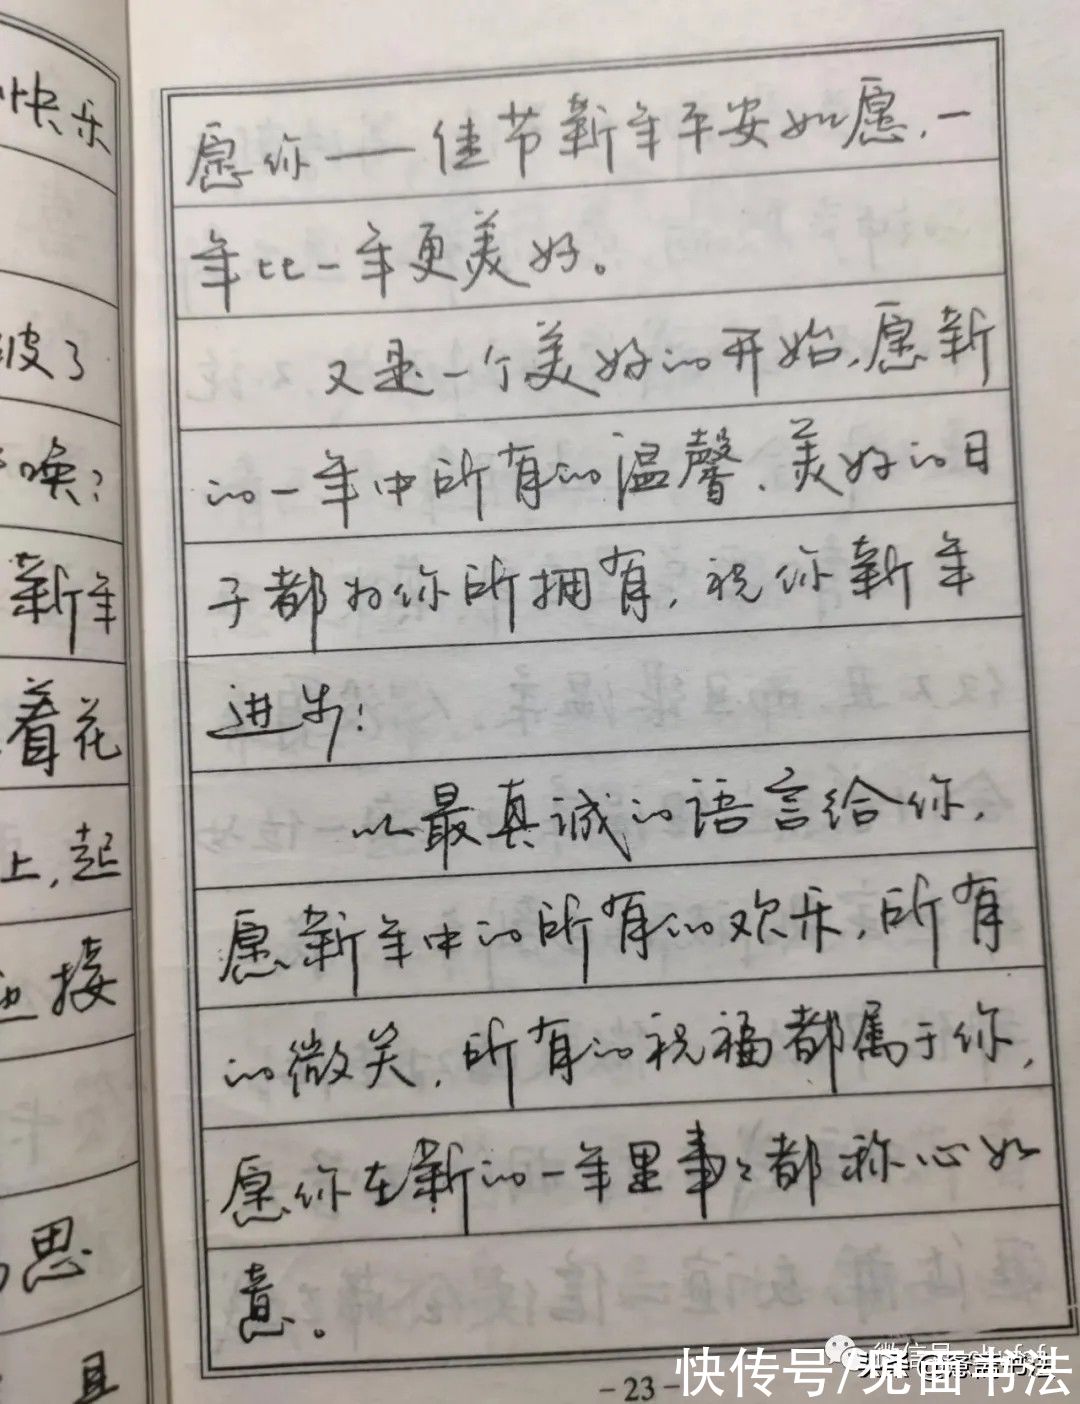 快乐
波了
唤?
新年
着花
上,起
接
思
且
愿你——佳节新年平安如愿,一
年比一年更美好。
又是一个美好的开始,愿新
的一年中所有的温馨、美好的日
子都为你所拥有,祝你新年
进步!
以最真诚的语言给你,
愿新年中的所有的欢乐,所有
的微笑,所有的祝福都属于你,
愿你在新的一年里事々都称心如
意。
-23-
快传号/见面书法